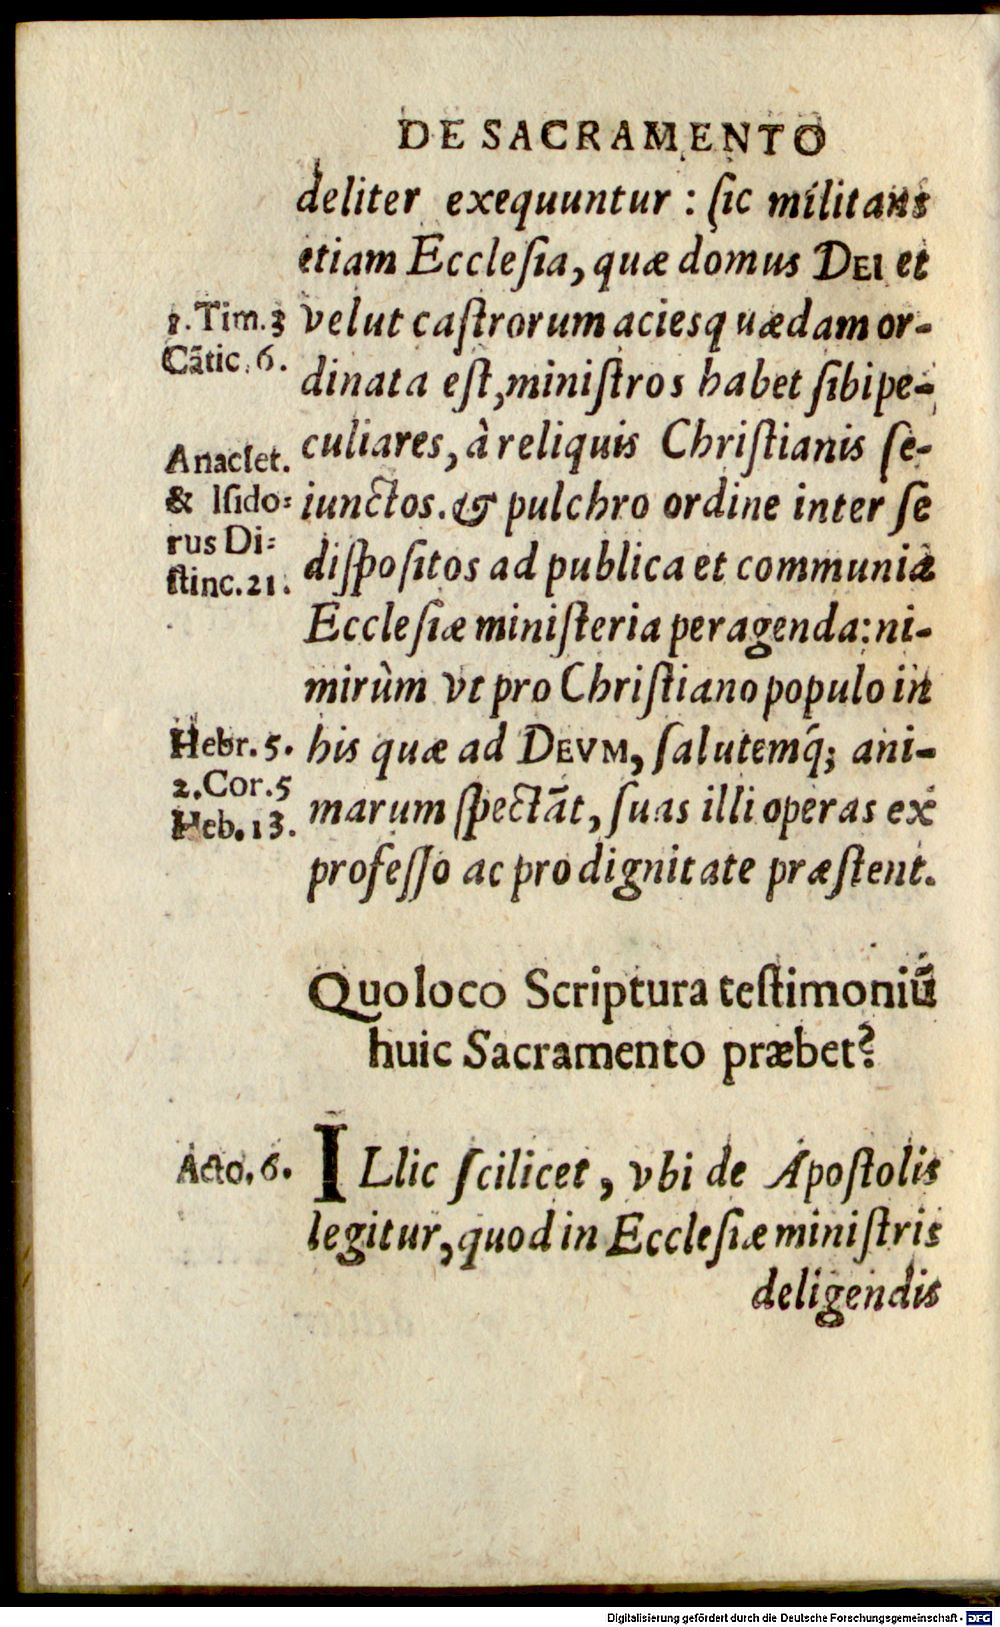 DE SACRAMENTO
deliter exequuntur : ſic militans
etiam Eccleſia, quæ domus DEI et
1.Tim.3
velut caſtrorum acies quædam or-
Cãtic.6.
dinata eſt, miniſtros habet ſibi pe-
Anaclet.
culiares, à reliquis Chriſtianis ſe-
& Iſido:
iunctos. & pulchro ordine inter ſe
rus Di:
diſpoſitos ad publica et communia
ſtinc.21.
Eccleſiæ miniſteria peragenda: ni-
mirùm vt pro Chriſtiano populo in
Hebr. 5.
his quæ ad DEVM, ſalutemq́; ani-
2.Cor.5
marum ſpectãt, ſuas illi operas ex
Heb.13.
profeſſo ac pro dignitate præſtent.
Quo loco Scriptura teſtimoniũ
huic Sacramento præbet?
Acto.6.
ILlic ſcilicet, vbi de Apoſtolis
legitur, quod in Eccleſiæ miniſtris
deligendis
Digitalisierung gefördert durch die Deutsche Forschungsgemeinschaft - DFG